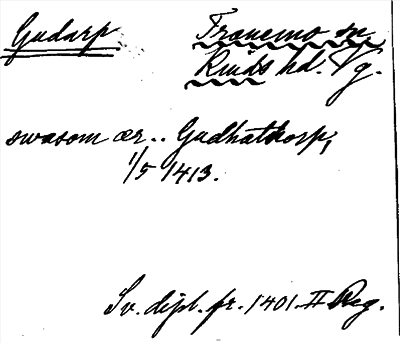 Gudarp.
Tranemo sn
Kinds hd. Vg.
swasom ær.. Gudhathorp,
1/5 1413.
Sv. dipl. fr. 1401. II Reg.